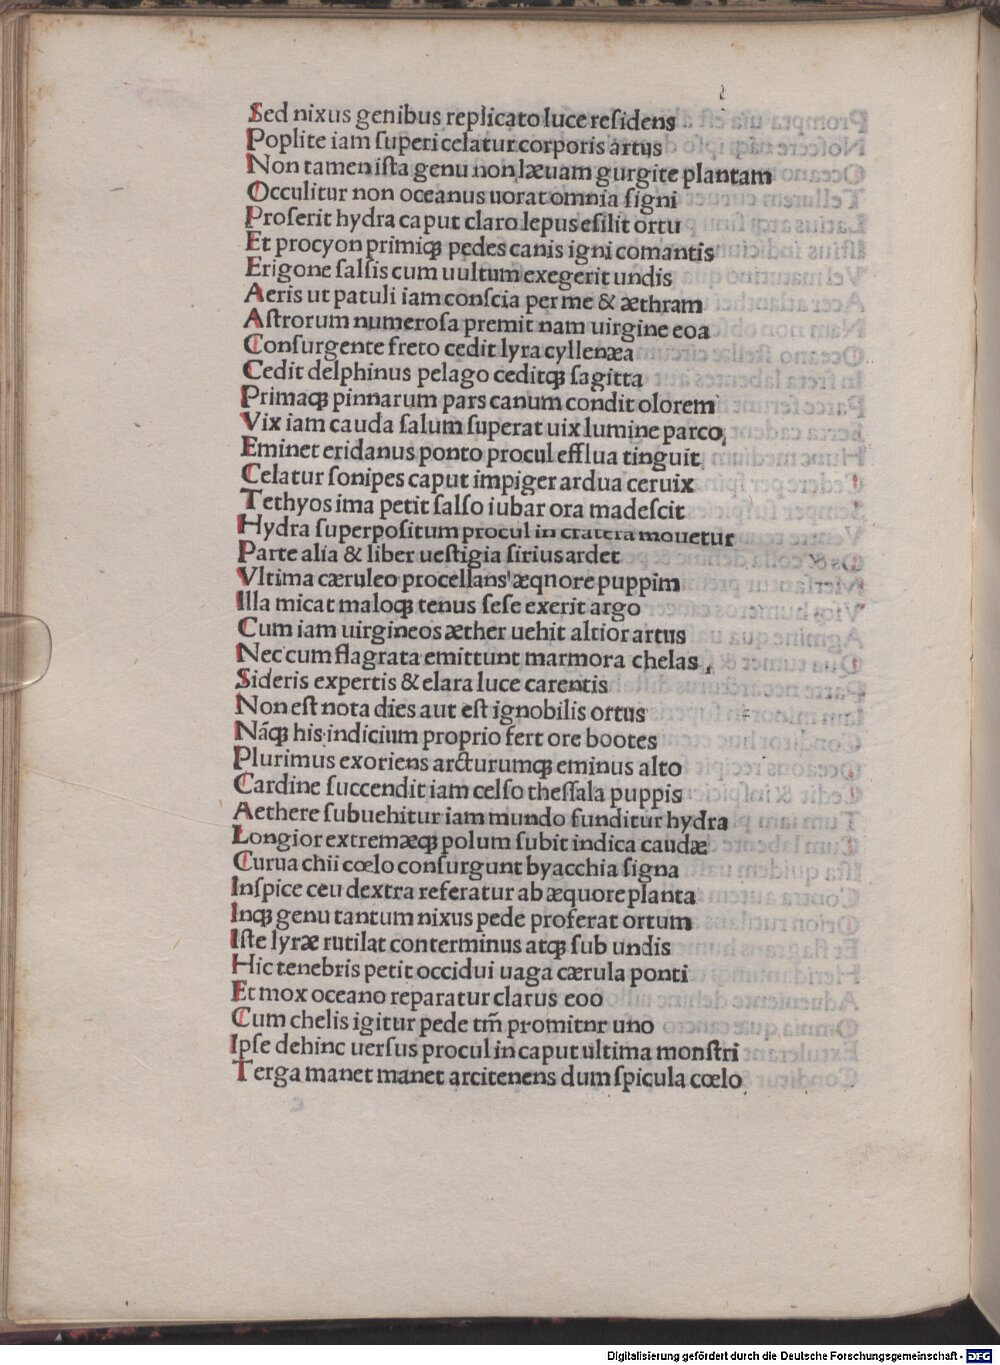 Sed nixus genibus replicato luce reſidens
Poplite iam ſuperi celatur corporis artus
Non tamen iſta genu non læuam gurgite plantam
Occulitur non oceanus uorat omnia ſigni
Proſerit hydra caput claro lepus eſilit ortu
Et procyon primiqꝫ pedes canis igni comantis
Erigone ſalſis cum uultum exegerit undis
Aeris ut patuli iam conſcia per me & æthram
Aſtrorum numeroſa premit nam uirgine eoa
Conſurgente freto cedit lyra cyllenæa
Cedit delphinus pelago ceditqꝫ ſagitta
Primaqꝫ pinnarum pars canum condit olorem
Vix iam cauda ſalum ſuperat uix lumine parco
Eminet eridanus ponto procul efflua tinguit
Celatur ſonipes caput impiger ardua ceruix
Tethyos ima petit ſalſo iubar ora madeſcit
Hydra ſuperpoſitum procul in cratera mouetur
Parte alia & liber ueſtigia ſirius ardet
Vltima cæruleo procellans æqnore puppim
Illa micat maloqꝫ tenus ſeſe exerit argo
Cum iam uirgineos æther uehit altior artus
Nec cum flagrata emittunt marmora chelas
Sideris expertis & elara luce carentis
Non eſt nota dies aut eſt ignobilis ortus
Nãqꝫ his indicium proprio fert ore bootes
Plurimus exoriens arcturumqꝫ eminus alto
Cardine ſuccendit iam celſo theſſala puppis
Aethere ſubuehitur iam mundo funditur hydra
Longior extremæqꝫ polum ſubit indica caudæ
Curua chii cœlo conſurgunt byacchia ſigna
Inſpice ceu dextra referatur ab æquore planta
Inqꝫ genu tantum nixus pede proferat ortum
Iſte lyræ rutilat conterminus atqꝫ ſub undis
Hic tenebris petit occidui uaga cærula ponti
Et mox oceano reparatur clarus eoo
Cum chelis igitur pede tm̃ promitnr uno
Ipſe dehinc uerſus procul in caput ultima monſtri
Terga manet manet arcitenens dum ſpicula cœlo
Digitalisierung gefördert durch die Deutsche Forschungsgemeinschaft - DFG